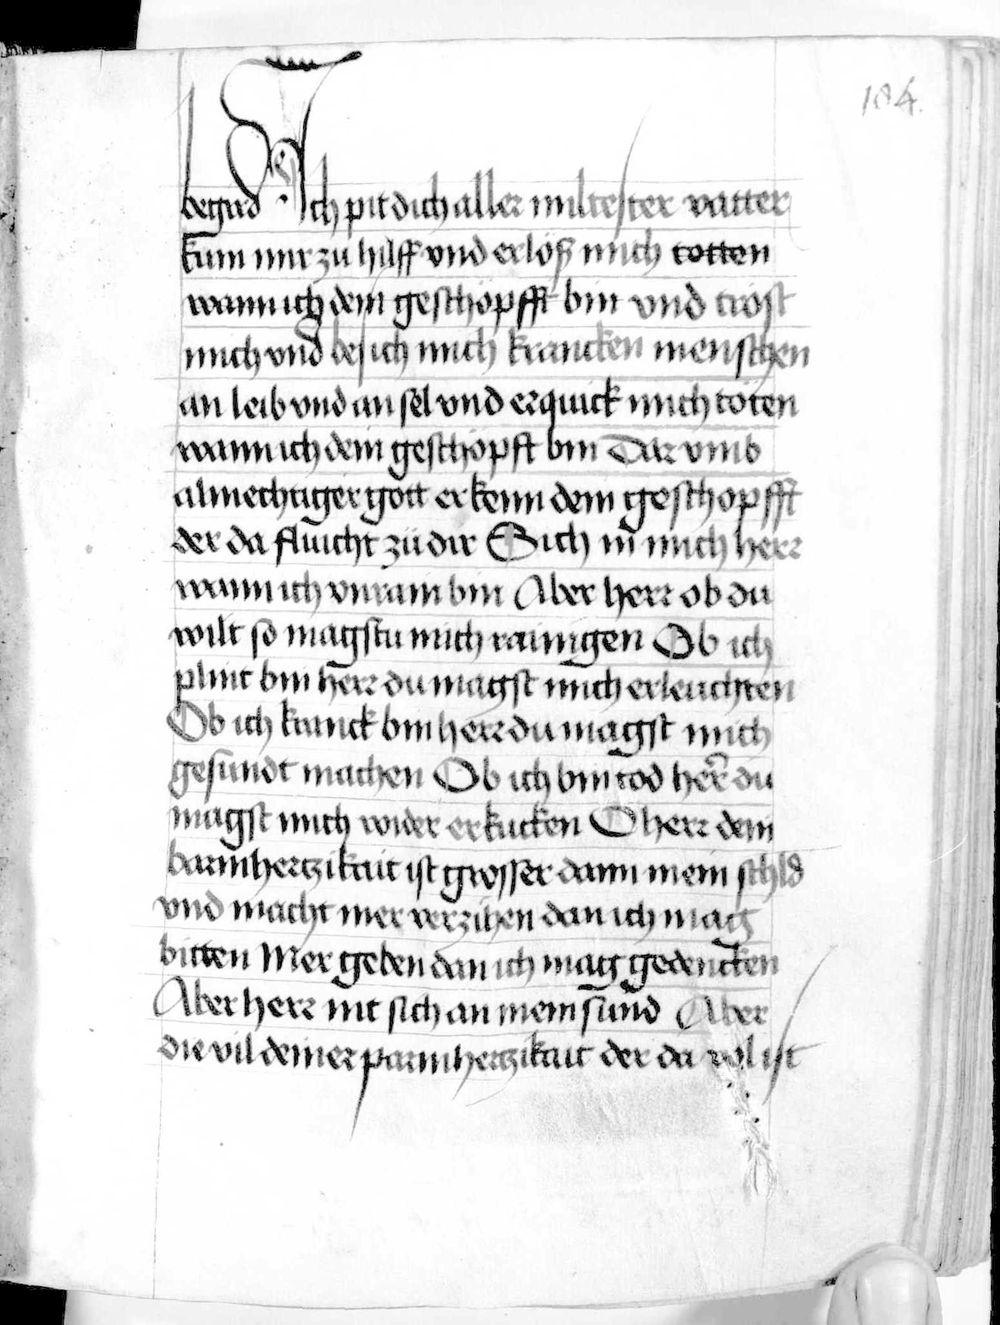 184.
begird · Ich pit dich aller miltester vatter
kum mir zu hilff vnd erlöß mich totten
wann ich dein geschöpfft bin vnd tröst
mich vnd besich mich krancken menschen
an leib vnd an sel vnd erquick mich töten
wann ich dein geschöpft bin Dar vmb
almechtiger gott erkenn dein geschopfft
der da fluicht zü dir Sich in mich herr
wann ich vnrain bin Aber herr ob du
wilt so magstu mich rainigen Ob ich
plint bin herr du magst mich erleuchten
Ob ich kranck bin herr du magst mich
gesundt machen Ob ich bin tod herr du
magst mich wider erkucken O herr dein
barmhertzikait ist grosser dann mein schld
vnd macht mer verzihen dan ich mag
bitten Mer geben dan ich mag gedencken
Aber herr nit sich an mein sünd Aber
die vil deiner parmhertzikait der da vol ist